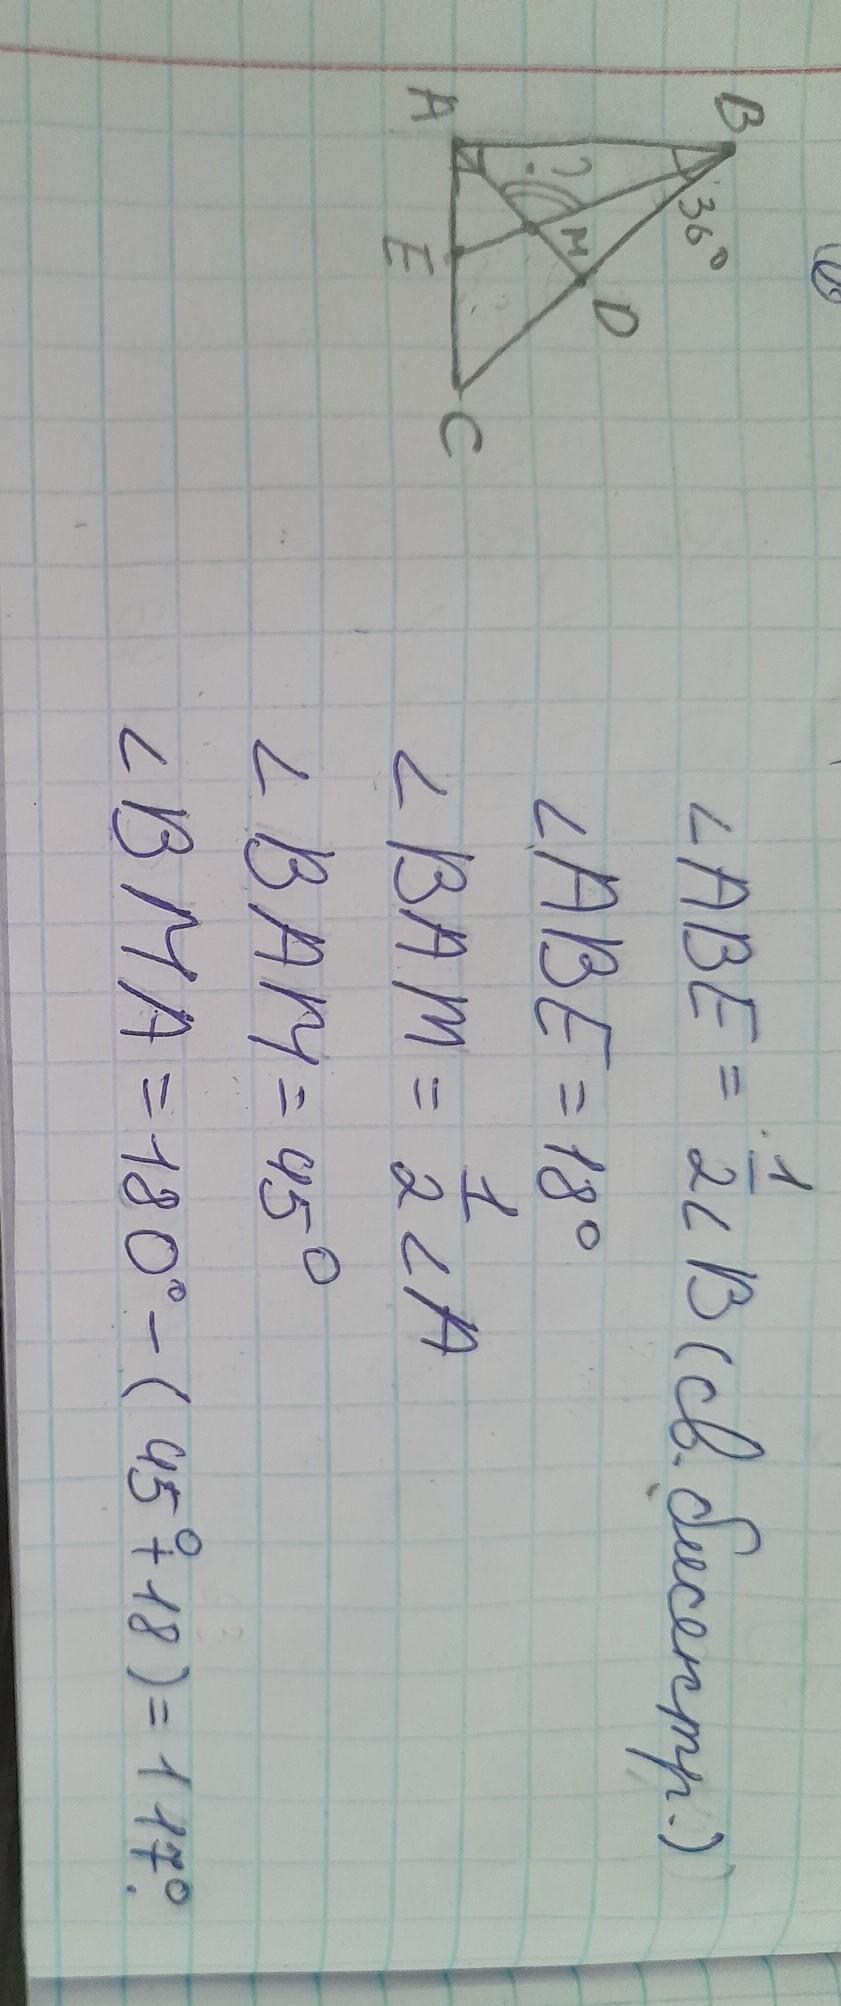 B
36°
D
M
?
A
E
C
∠ABE = 1/2 ∠B (св. бисектр.)
∠ABE = 18°
∠BAM = 1/2 ∠A
∠BAM = 45°
∠BMA = 180° - (45° + 18) = 117°.